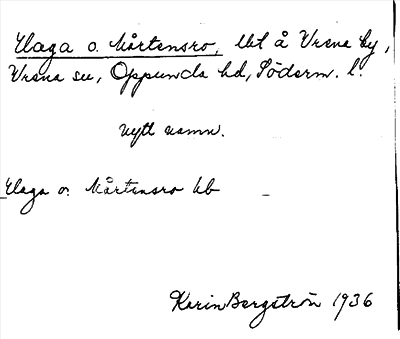 Haga o. Mårtensro, lht å Vrena by,
Vrena sn, Oppunda hd, Söderm. l.
nytt namn.
Haga o. Mårtensro hb
Karin Bergström 1936